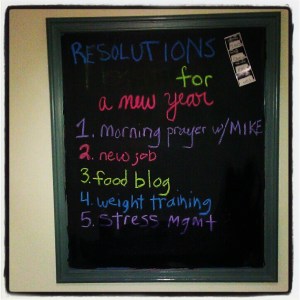 RESOLUTIONS
for
a new year
1. morning prayer w/MIKE
2. new job
3. food blog
4. weight training
5. Stress mgmt